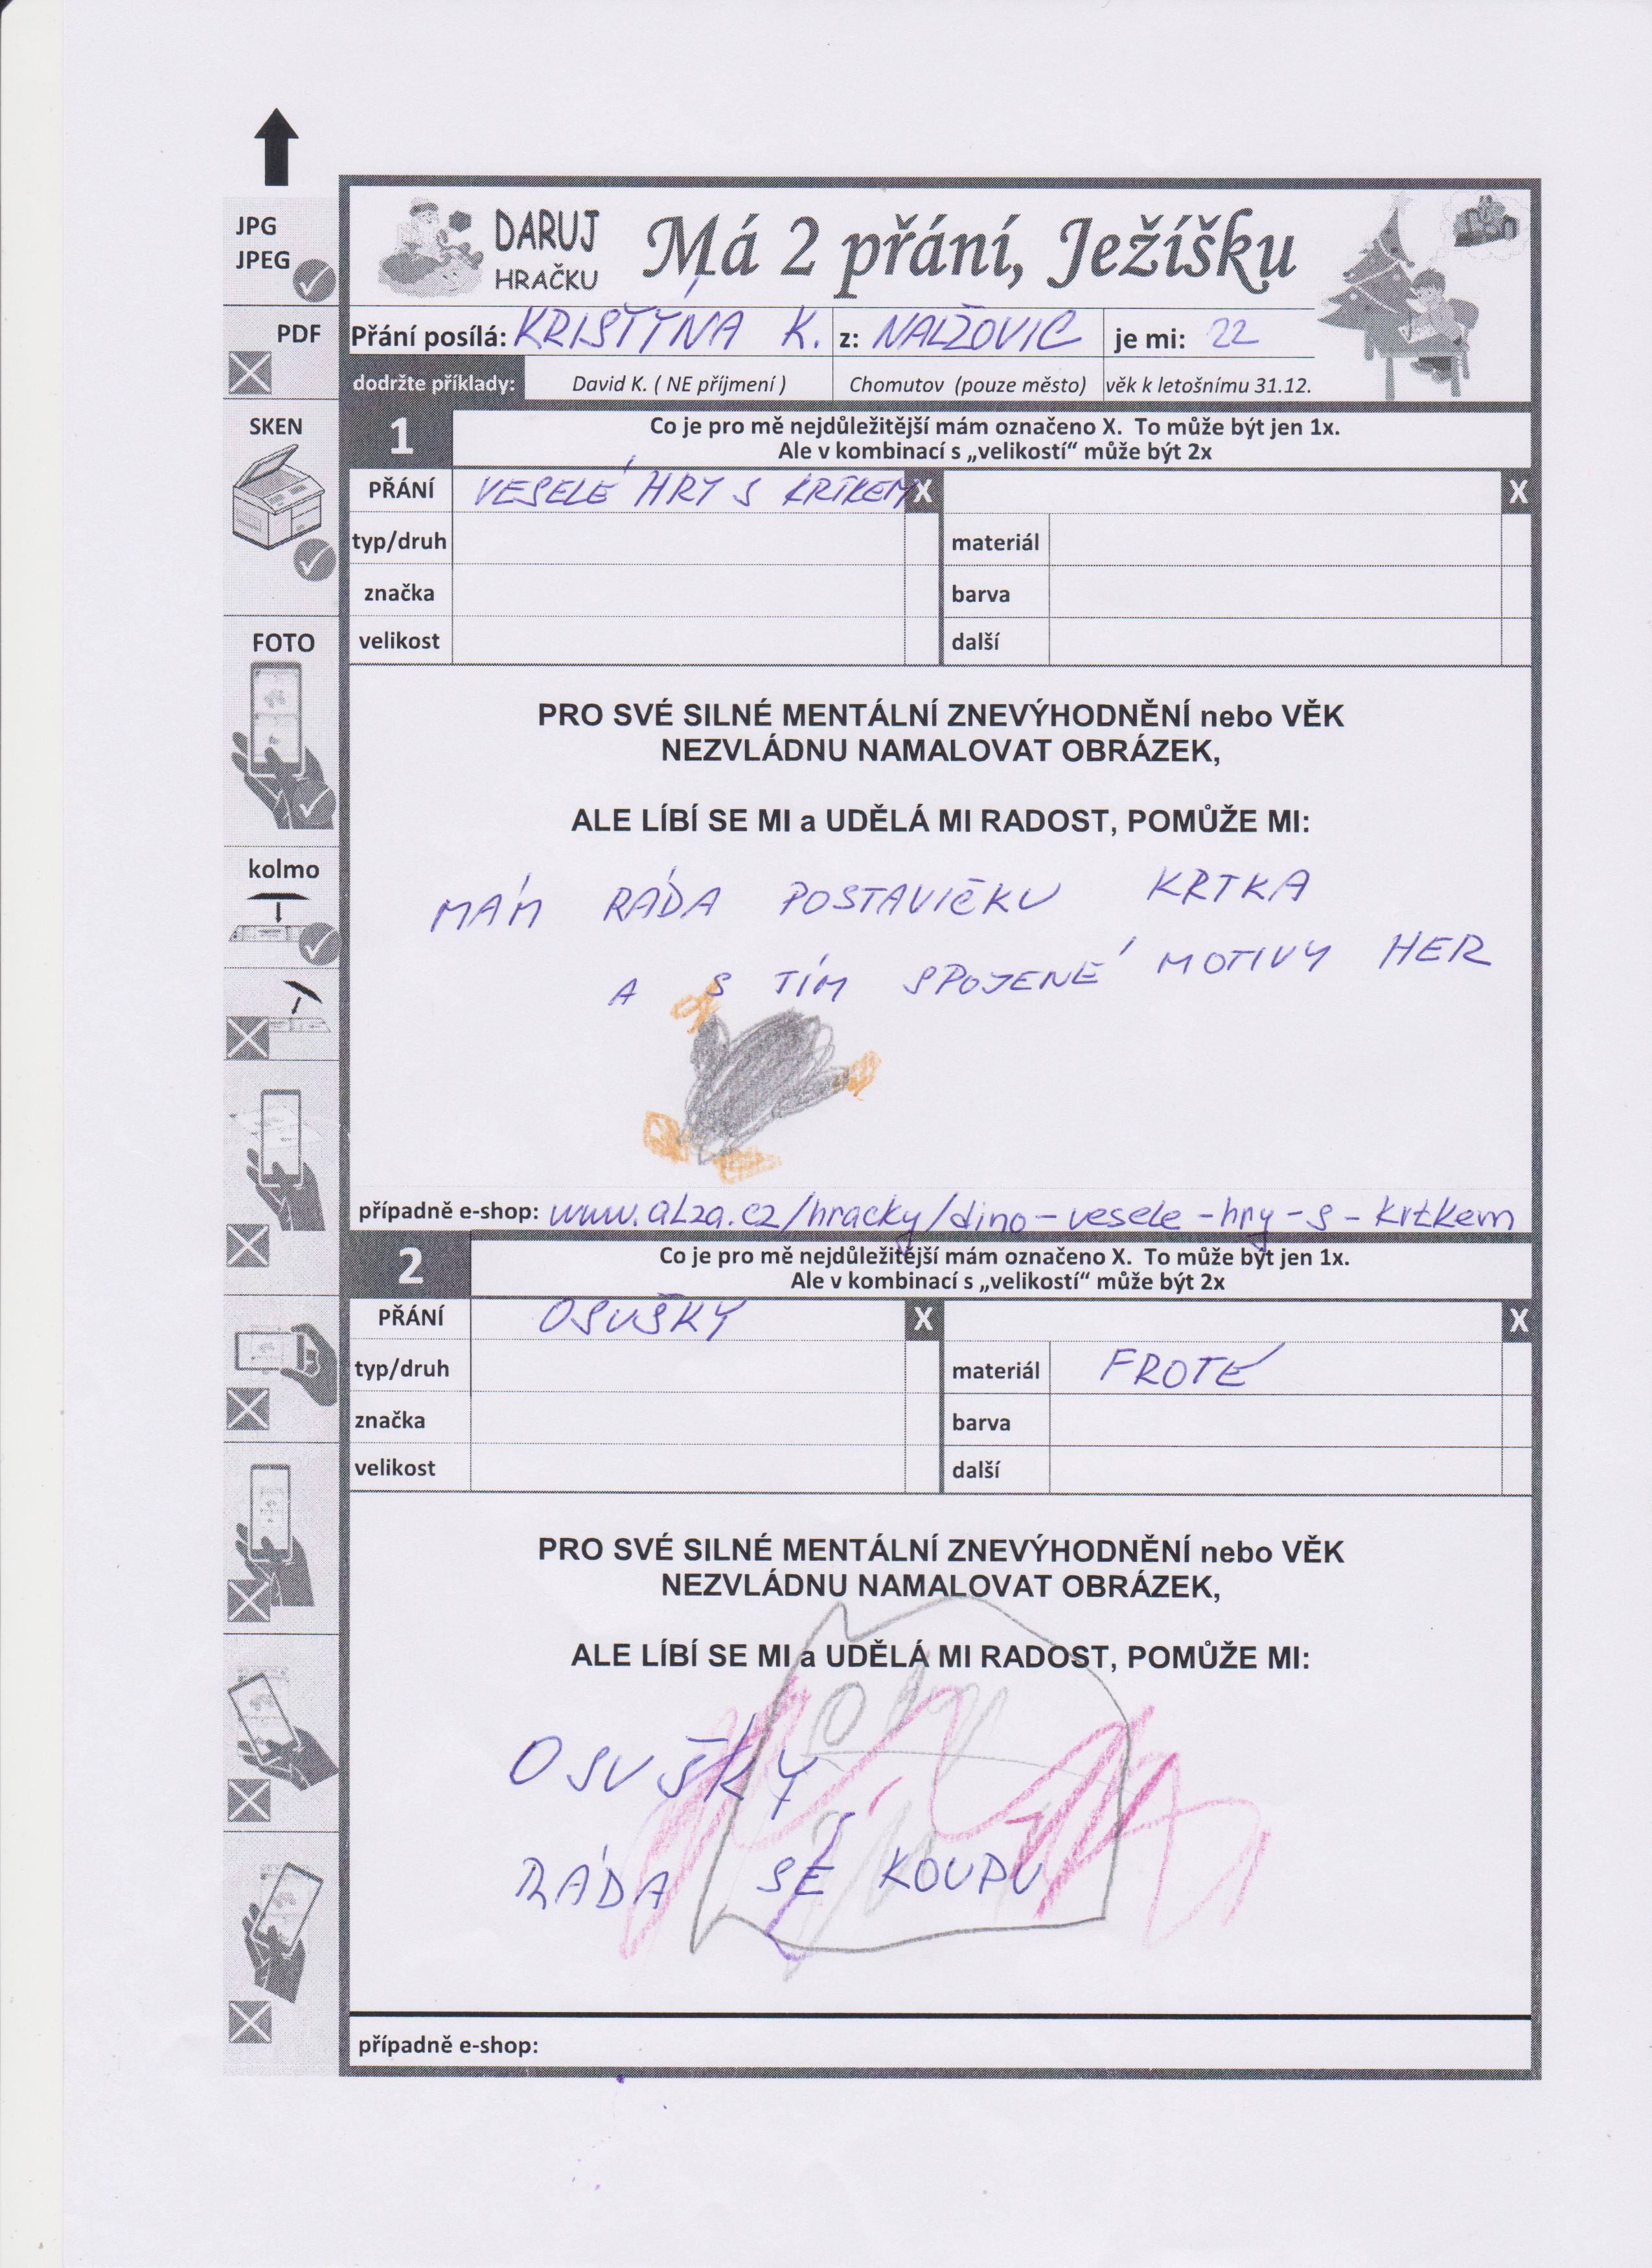 JPG
JPEG
PDF
SKEN
FOTO
kolmo
DARUJ
HRAČKU
Má 2 přání, Ježíšku
Přání posílá: KRISTÝNA K. z: NALŽOVIC je mi: 22
dodržte příklady: David K. ( NE příjmení ) Chomutov (pouze město) věk k letošnímu 31.12.
1
Co je pro mě nejdůležitější mám označeno X. To může být jen 1x.
Ale v kombinací s „velikostí“ může být 2x
PŘÁNÍ VESELÉ HRY S KRTKEM X X
typ/druh materiál
značka barva
velikost další
PRO SVÉ SILNÉ MENTÁLNÍ ZNEVÝHODNĚNÍ nebo VĚK
NEZVLÁDNU NAMALOVAT OBRÁZEK,
ALE LÍBÍ SE MI a UDĚLÁ MI RADOST, POMŮŽE MI:
MÁM RÁDA POSTAVIČKU KRTKA
A S TÍM SPOJENÉ MOTIVY HER
případně e-shop: www.alza.cz/hracky/dino-vesele-hry-s-krtkem
2
Co je pro mě nejdůležitější mám označeno X. To může být jen 1x.
Ale v kombinací s „velikostí“ může být 2x
PŘÁNÍ OSUŠKY X X
typ/druh materiál FROTÉ
značka barva
velikost další
PRO SVÉ SILNÉ MENTÁLNÍ ZNEVÝHODNĚNÍ nebo VĚK
NEZVLÁDNU NAMALOVAT OBRÁZEK,
ALE LÍBÍ SE MI a UDĚLÁ MI RADOST, POMŮŽE MI:
OSUŠKY
RÁDA SE KOUPU
případně e-shop: